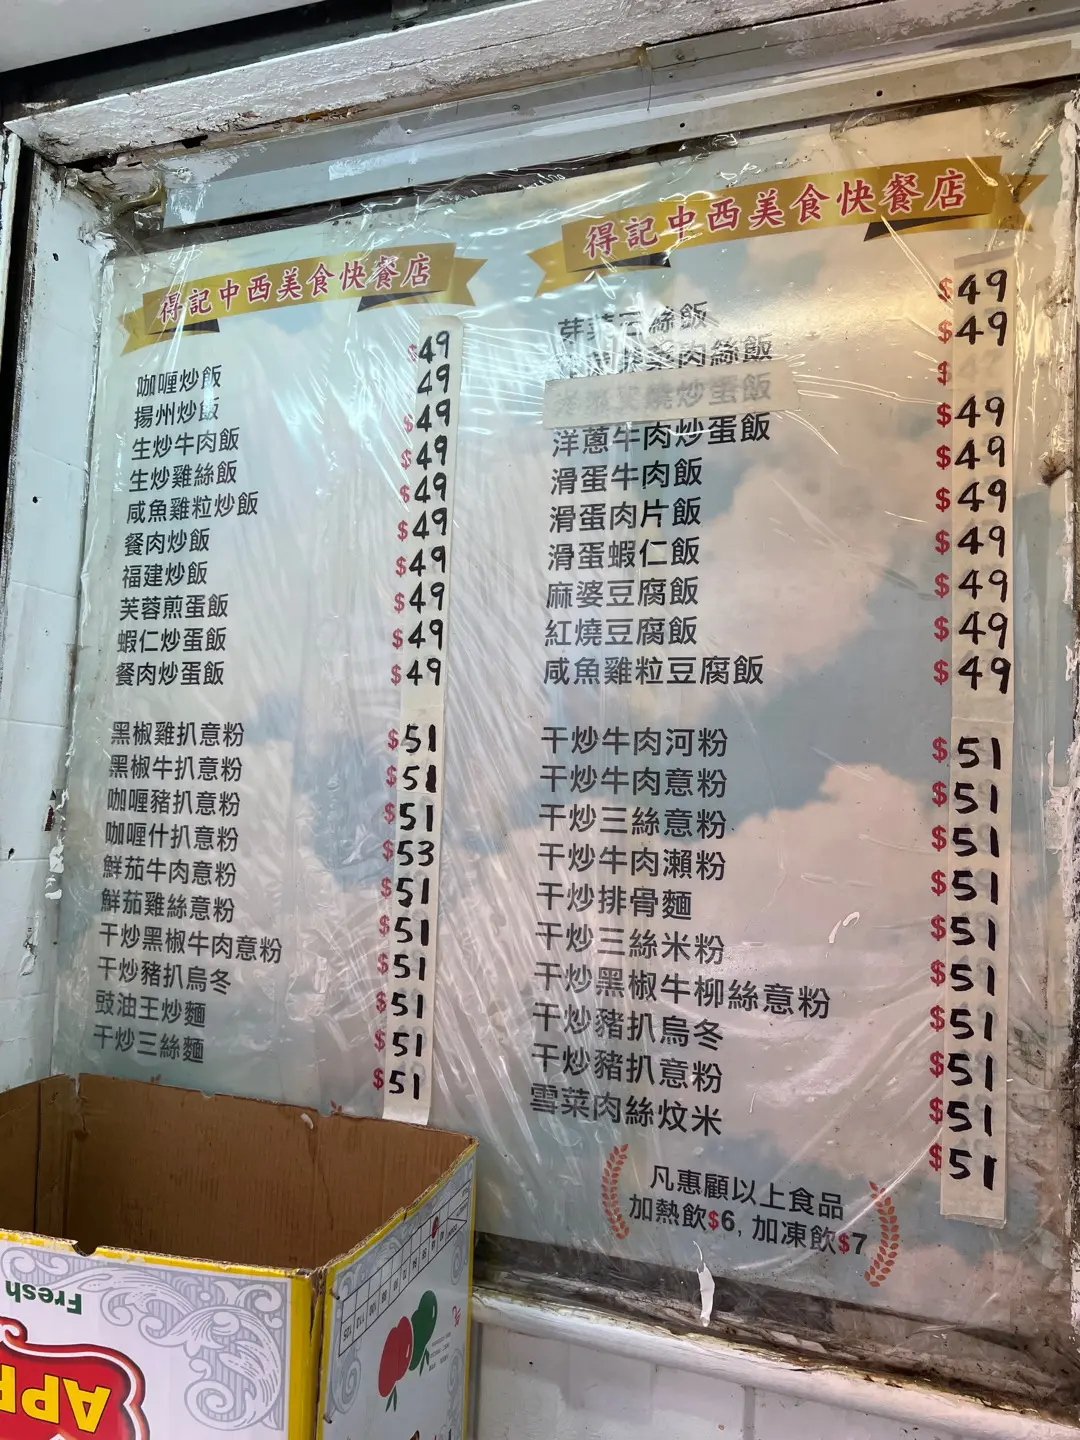 得記中西美食快餐店
咖喱炒飯 $49
揚州炒飯 49
生炒牛肉飯 $49
生炒雞絲飯 $49
咸魚雞粒炒飯 $49
餐肉炒飯 $49
福建炒飯 $49
芙蓉煎蛋飯 $49
蝦仁炒蛋飯 $49
餐肉炒蛋飯 $49
黑椒雞扒意粉 $51
黑椒牛扒意粉 $51
咖喱豬扒意粉 $51
咖喱什扒意粉 $53
鮮茄牛肉意粉 $51
鮮茄雞絲意粉 $51
干炒黑椒牛肉意粉 $51
干炒豬扒烏冬 $51
豉油王炒麵 $51
干炒三絲麵 $51
得記中西美食快餐店
芽菜三絲飯 $49
菜肉絲飯 $49
燒炒蛋飯 $42
洋蔥牛肉炒蛋飯 $49
滑蛋牛肉飯 $49
滑蛋肉片飯 $49
滑蛋蝦仁飯 $49
麻婆豆腐飯 $49
紅燒豆腐飯 $49
咸魚雞粒豆腐飯 $49
干炒牛肉河粉 $51
干炒牛肉意粉 $51
干炒三絲意粉 $51
干炒牛肉瀨粉 $51
干炒排骨麵 $51
干炒三絲米粉 $51
干炒黑椒牛柳絲意粉 $51
干炒豬扒烏冬 $51
干炒豬扒意粉 $51
雪菜肉絲炆米 $51
凡惠顧以上食品
加熱飲$6, 加凍飲$7
Fresh